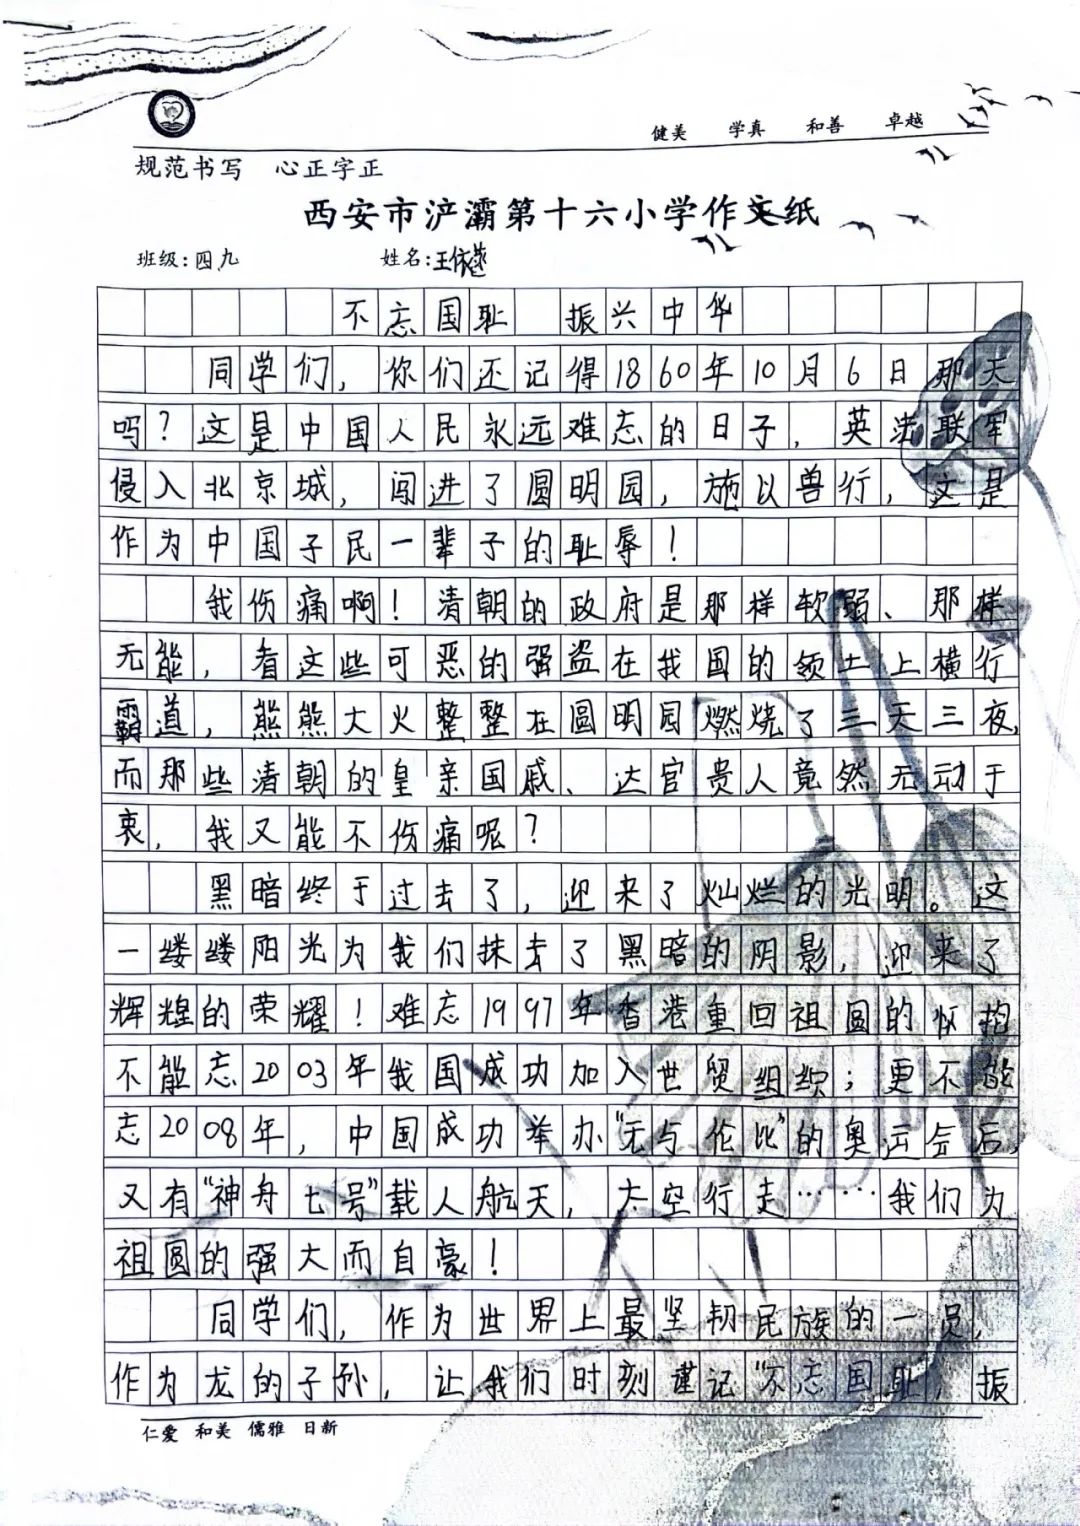 健美 学真 和善 卓越
规范书写 心正字正
西安市浐灞第十六小学作文纸
班级:四九 姓名:王依
不忘国耻 振兴中华
同学们，你们还记得1860年10月6日那天
吗？这是中国人民永远难忘的日子，英法联军
侵入北京城，闯进了圆明园，施以兽行，这是
作为中国子民一辈子的耻辱！
我伤痛啊！清朝的政府是那样软弱、那样
无能，看这些可恶的强盗在我国的领土上横行
霸道，熊熊大火整整在圆明园燃烧了三天三夜，
而那些清朝的皇亲国戚、达官贵人竟然无动于
衷，我又能不伤痛呢？
黑暗终于过去了，迎来了灿烂的光明。这
一缕缕阳光为我们抹去了黑暗的阴影，迎来了
辉煌的荣耀！难忘1997年香港重回祖圆的怀抱
不能忘2003年我国成功加入世贸组织；更不能
忘2008年，中国成功举办“无与伦比”的奥运会后，
又有“神舟七号”载人航天，太空行走……我们为
祖圆的强大而自豪！
同学们，作为世界上最坚韧民族的一员，
作为龙的子孙，让我们时刻谨记“不忘国耻，振
仁爱 和美 儒雅 日新